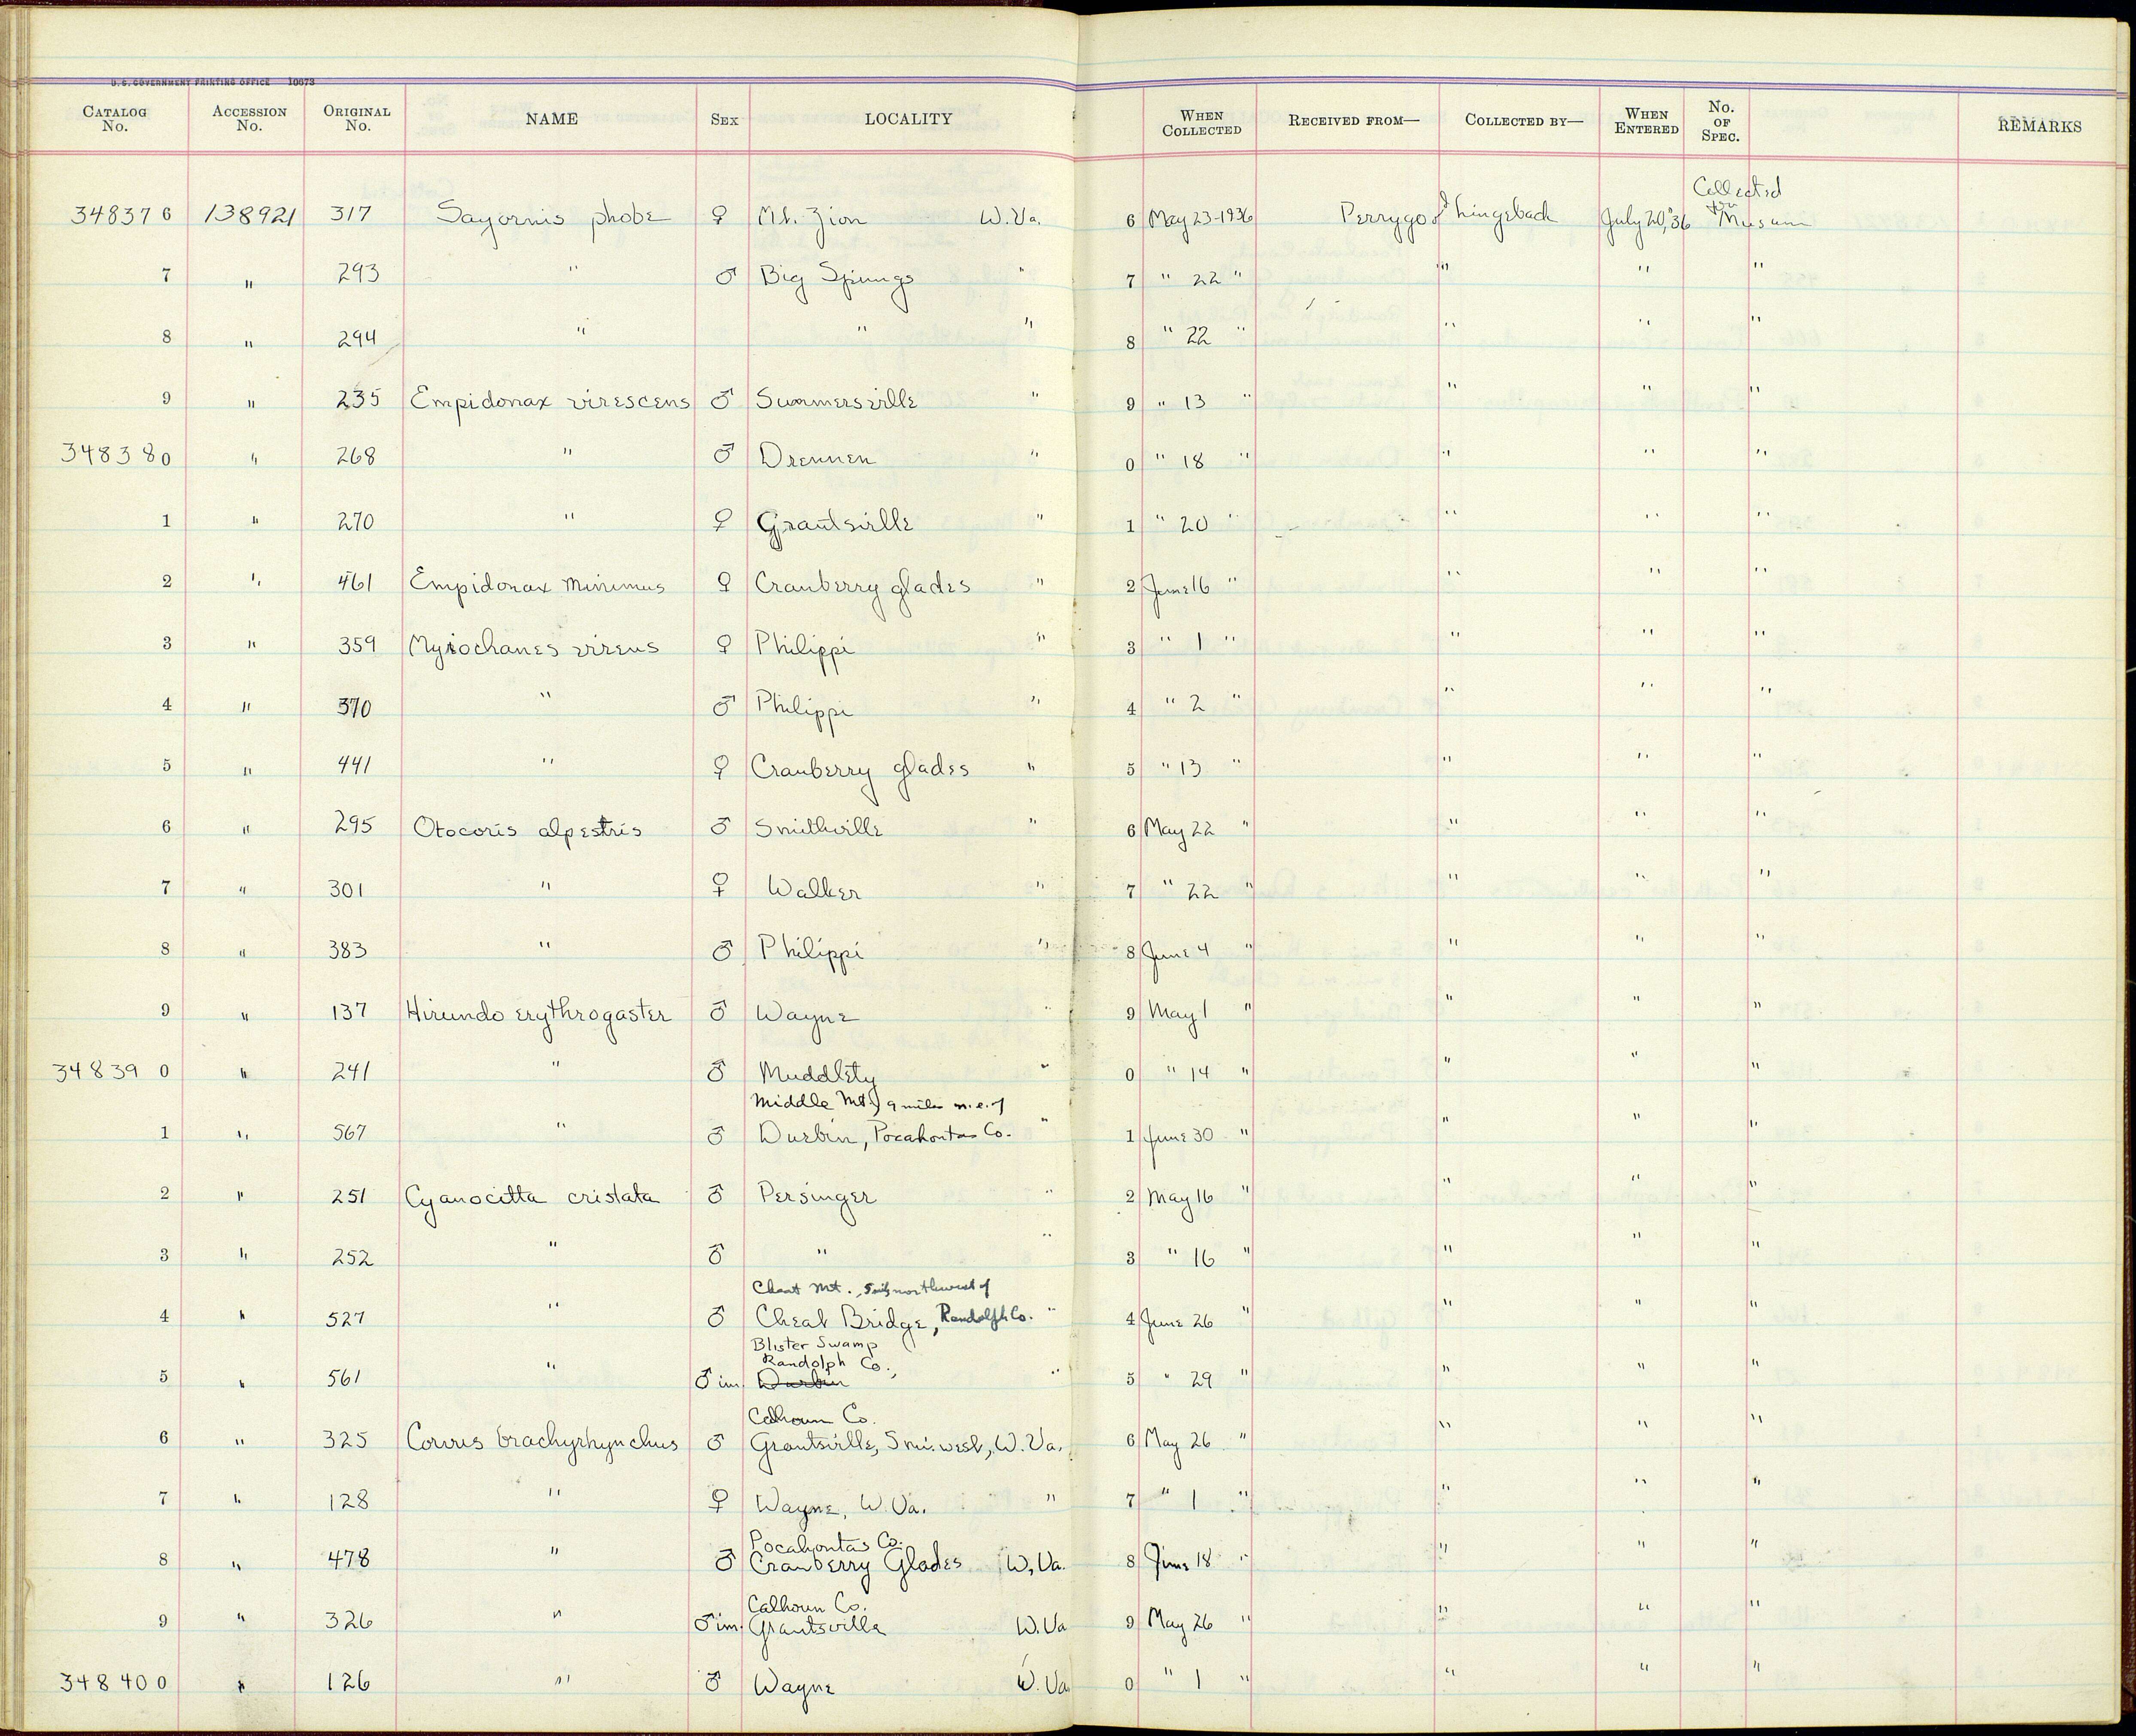 U.S. GOVERNMENT PRINTING OFFICE 10673
CATALOG No. ACCESSION No. ORIGINAL No. NAME SEX LOCALITY WHEN COLLECTED RECEIVED FROM— COLLECTED BY— WHEN ENTERED No. OF SPEC. REMARKS
348376 138921 317 Sayornis phobe ♀ Mt. Zion W.Va. 6 May 23-1936 Perrygo & Lingebach July 20, '36 Collected for Museum
7 " 293 " ♂ Big Springs " 7 " 22 " " " "
8 " 294 " " " 8 " 22 " " " "
9 " 235 Empidonax virescens ♂ Summersville " 9 " 13 " " " "
348380 " 268 " ♂ Drennen " 0 " 18 " " " "
1 " 270 " ♀ Grantsville " 1 " 20 " " " "
2 " 461 Empidonax minimus ♀ Cranberry glades " 2 June 16 " " " "
3 " 359 Myiochanes virens ♀ Philippi " 3 " 1 " " " "
4 " 370 " ♂ Philippi " 4 " 2 " " " "
5 " 441 " ♀ Cranberry glades " 5 " 13 " " " "
6 " 295 Otocoris alpestris ♂ Smithville " 6 May 22 " " " "
7 " 301 " ♀ Walker " 7 " 22 " " " "
8 " 383 " ♂ Philippi " 8 June 4 " " " "
9 " 137 Hirundo erythrogaster ♂ Wayne " 9 May 1 " " " "
348390 " 241 " ♂ Muddlety " 0 " 14 " " " "
Middle Mt., 9 miles n.e. of
1 " 567 " ♂ Durbin, Pocahontas Co. " 1 June 30 " " " "
2 " 251 Cyanocitta cristata ♂ Persinger " 2 May 16 " " " "
3 " 252 " ♂ " " 3 " 16 " " " "
Cheat Mt., 5 mi northwest of
4 " 527 " ♂ Cheat Bridge, Randolph Co. " 4 June 26 " " " "
Blister Swamp
Randolph Co.,
5 " 561 " ♂ im. Durbin " 5 " 29 " " " "
Calhoun Co.
6 " 325 Corvus brachyrhynchus ♂ Grantsville, 5 mi. west, W.Va. 6 May 26 " " " "
7 " 128 " ♀ Wayne, W.Va. " 7 " 1 " " " "
Pocahontas Co.
8 " 478 " ♂ Cranberry Glades W.Va. 8 June 18 " " " "
Calhoun Co.
9 " 326 " ♂ im. Grantsville W.Va 9 May 26 " " " "
348400 " 126 " ♂ Wayne W.Va 0 " 1 " " " "